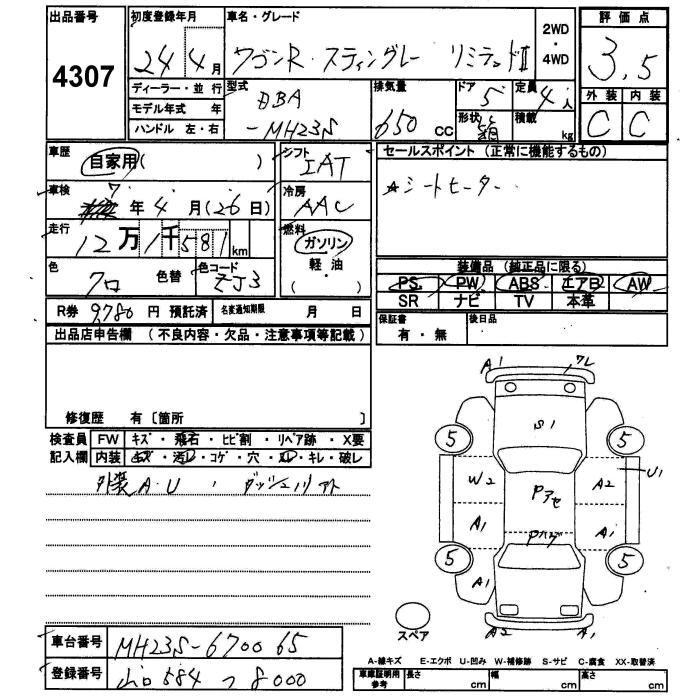 出品番号 初度登録年月 車名・グレード 2WD・4WD 評価点
4307 24年 4月 ワゴンR スティングレー リミテッドⅡ 3.5
ディーラー・並行 型式 排気量 ドア 定員 外装 内装
モデル年式 年 DBA 5 4人 C C
ハンドル 左・右 -MH23S 650 CC 形状 積載 kg
車歴 自家用( ) シフト IAT セールスポイント (正常に機能するもの)
車検 7年 4月(26日) 冷房 AAC ☆シートヒーター
走行 12万1千581km 燃料 ガソリン・軽油・( )
色 クロ 色替 色コード ZJ3 装備品 (純正品に限る)
PS PW ABS エアB AW
SR ナビ TV 本革
R券 9,780 円 預託済 名変通知期限 月 日 保証書 有・無 後日品
出品店申告欄 (不良内容・欠品・注意事項等記載)
修復歴 有〔箇所 〕
検査員 FW キズ・飛石・ヒビ割・リペア跡・X要
記入欄 内装 コゲ・穴・スレ・キレ・破レ
外装A・U、ダッシュノリアト
A1 ワレ
S1
5 5
W2 Pアセ A2 U1
A1 Pハゲ A1
5 5
A1
スペア A2 A1
車台番号 MH23S-670065
登録番号 山口 584 つ 8000
A-線キズ E-エクボ U-凹み W-補修跡 S-サビ C-腐食 XX-取替済
車庫証明用参考 長さ cm 幅 cm 高さ cm